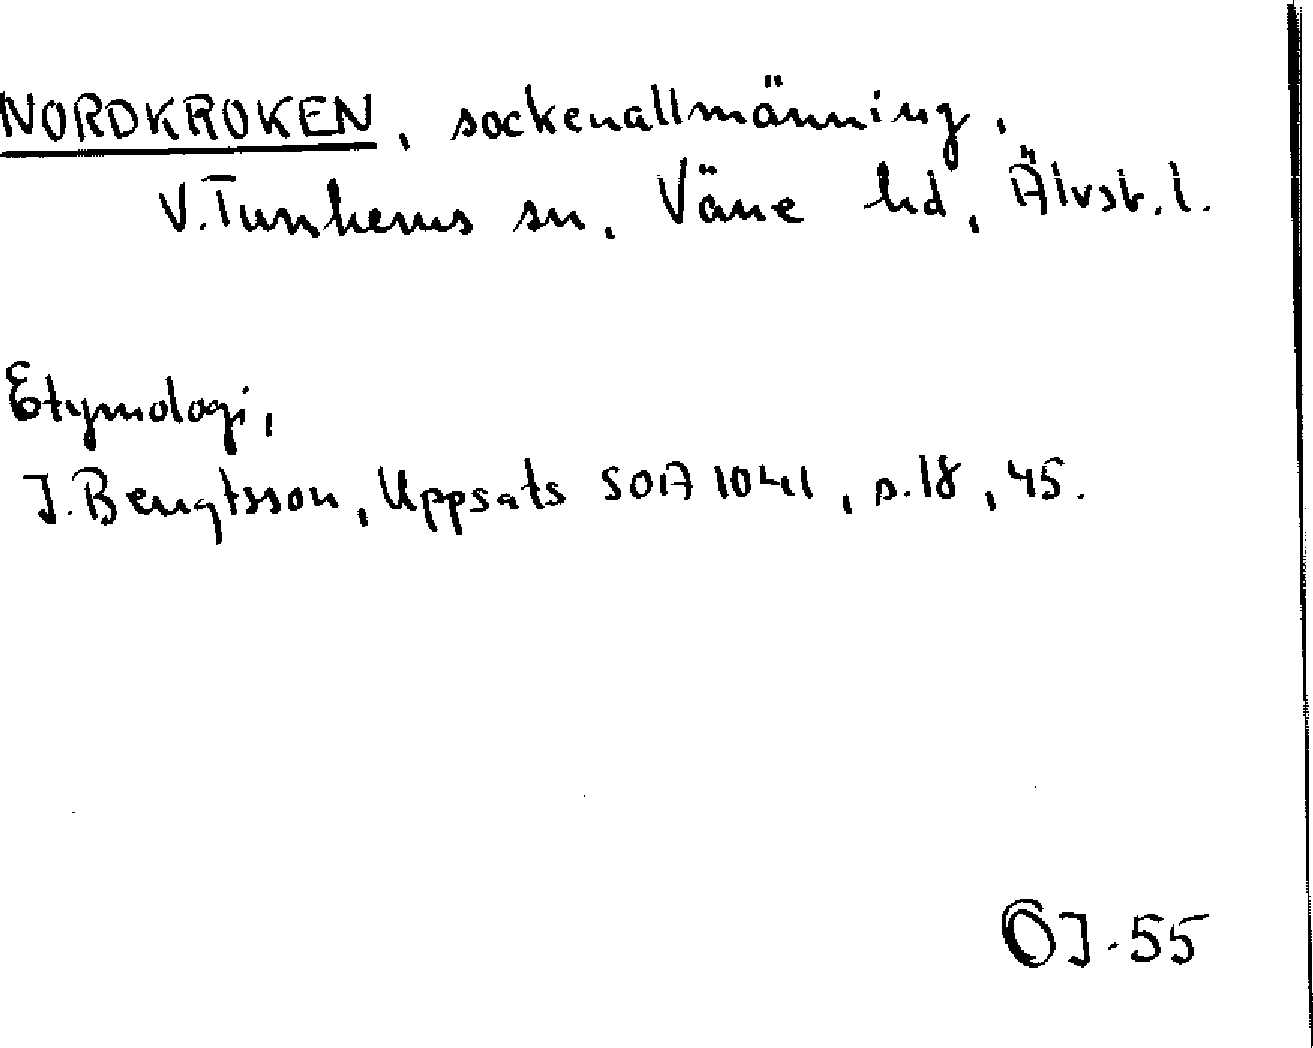 NORDKROKEN, sockenallmänning,
V. Tunhems sn, Väne hd, Älvsb. l.
Etymologi,
J. Bengtsson, Uppsats SOA 1041, s. 18, 45.
OJ-55